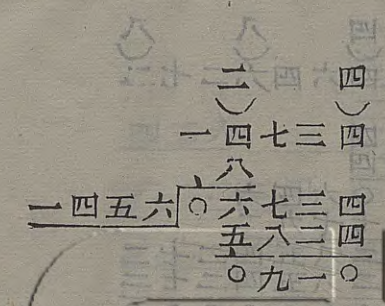 二) 四)
一四七三四
八
一四五六 〇六七三四
五八二四
〇九一〇